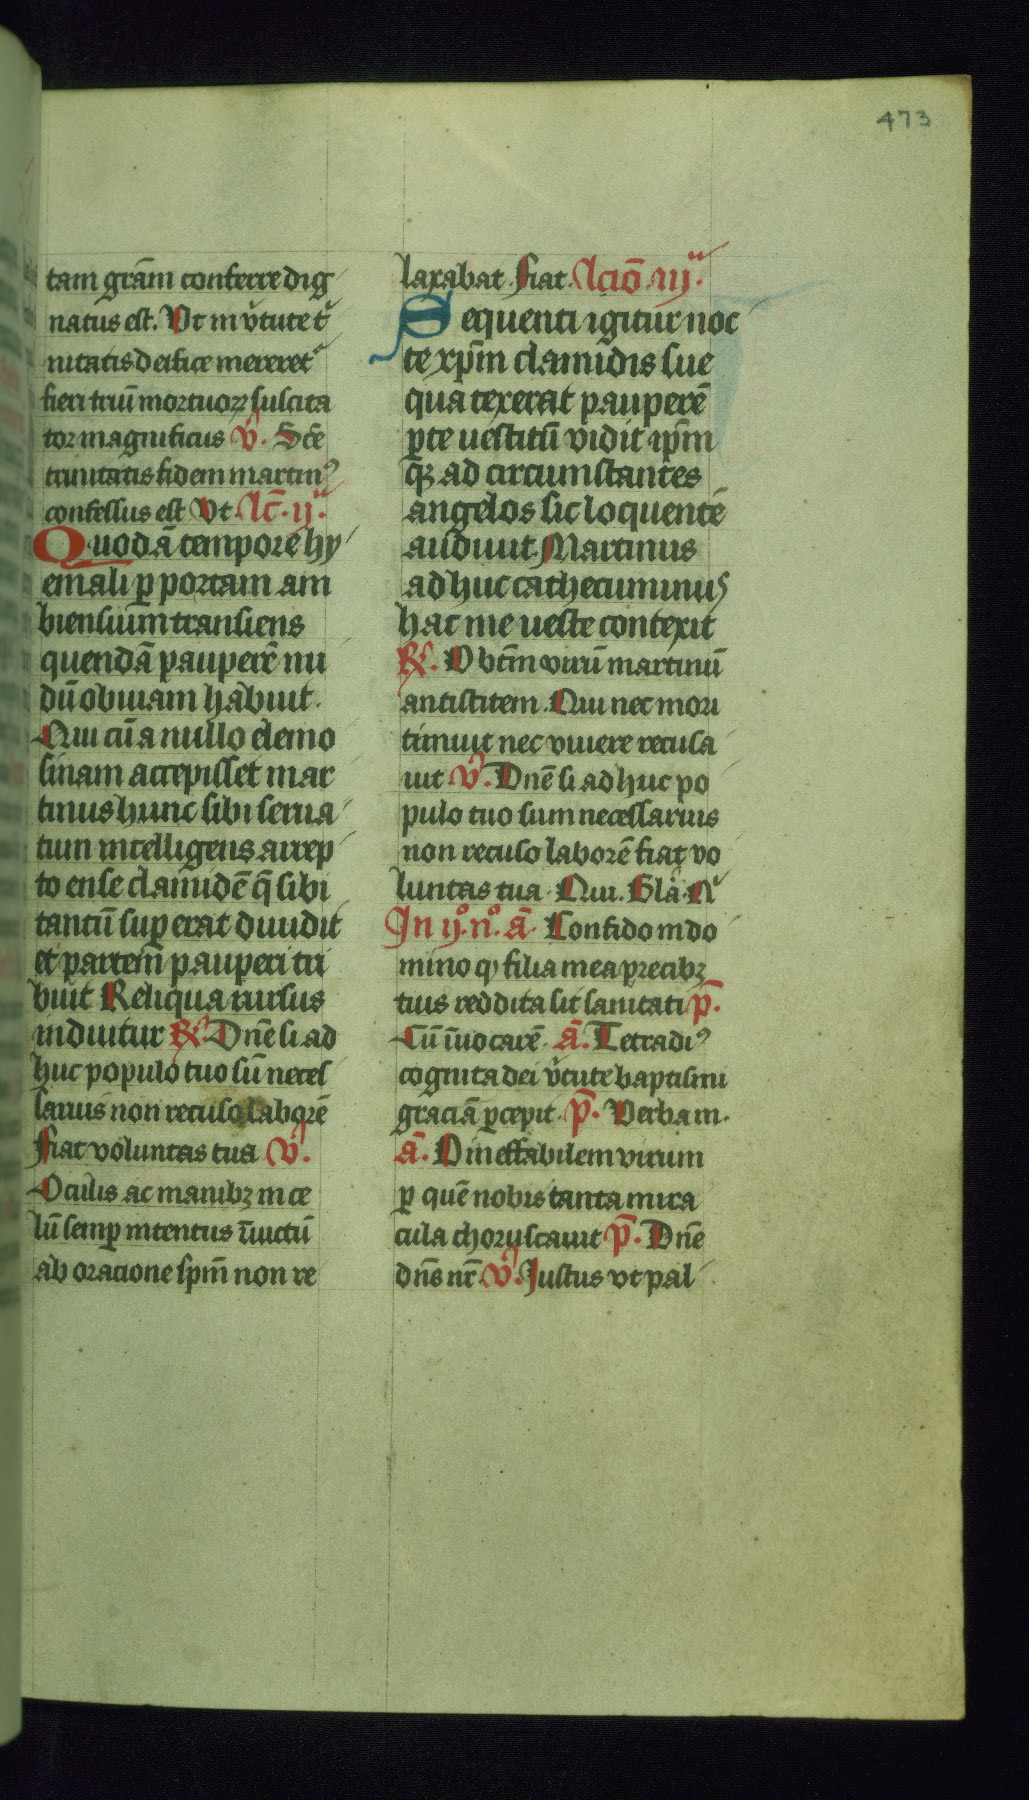 473
tam grām conferre dig
natus est. Ut in v̓tute t̓
nitatis deifice mereret᷑
fieri triū mortuoꝝ suscita
tor magnificus v̓. Scē
trinitatis fidem martinꝰ
confessus est Ut Lc̄. ij᷑.
Quodā tempore hy
emali ꝑ portam am
biensium transiens
quendā pauperē nu
dū obuiam habuit.
Qui cū a nullo elemo
sinam accepisset mar
tinus hunc sibi serua
tum intelligens arrep
to ense clamidē q̄ sibi
tantū suꝑerat diuidit
et partem̄ pauperi tri
buit Reliqua rursus
induitur R̓. Dn̄e si ad
huc populo tuo sū neces
sarius non recuso laborē
fiat voluntas tua v̓.
Oculis ac manibꝫ in ce
lū semꝑ intentus īuictū
ab oracione spm̄ non re
laxabat. fiat. Lcīo. iij᷑.
Sequenti igitur noc
te xpm̄ clamidis sue
qua texerat pauperē
ꝑte uestitū vidit ipm̄
qꝫ ad circumstantes
angelos sic loquentē
audiuit. Martinus
ad huc cathecuminus
hac me ueste contexit
R̓. O btm̄ virū martinū
antistitem. Qui nec mori
timuit nec viuere recusa
uit v̓. Dn̄e si ad huc po
pulo tuo sum necessarius
non recuso laborē fiat vo
luntas tua. Qui. Glā. N̓
In ijº. nº. ā. Confido in do
mino ꝙ filia mea precibꝫ
tuis reddita sit sanitati p̄.
Cū īuocarē. ā. Tetradiꝰ
cognita dei v̓tute baptismi
graciā ꝑcepit. p̄. Verba m.
ā. O ineffabilem virum
ꝑ quē nobis tanta mira
cula choruscauit p̄. Dn̄e
dn̄s nr̄ v̓. Justus vt pal